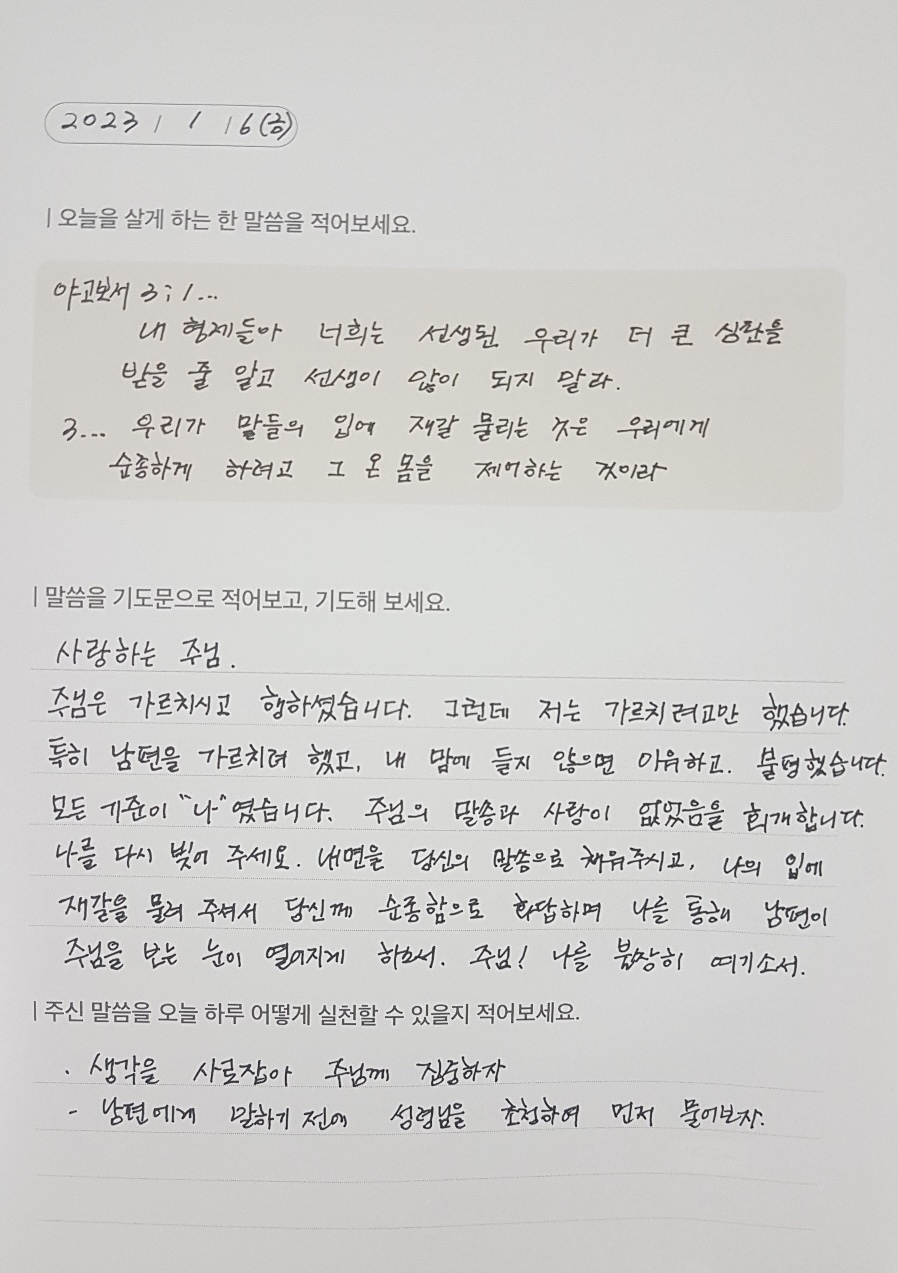 2023 / 1 / 6 (금)
| 오늘을 살게 하는 한 말씀을 적어보세요.
야고보서 3 ; 1 ...
내 형제들아 너희는 선생된 우리가 더 큰 심판을
받을 줄 알고 선생이 많이 되지 말라.
3... 우리가 말들의 입에 재갈 물리는 것은 우리에게
순종하게 하려고 그 온 몸을 제어하는 것이라
| 말씀을 기도문으로 적어보고, 기도해 보세요.
사랑하는 주님.
주님은 가르치시고 행하셨습니다. 그런데 저는 가르치려고만 했습니다.
특히 남편을 가르치려 했고, 내 맘에 들지 않으면 이유하고. 불평했습니다.
모든 기준이 "나"였습니다. 주님의 말씀과 사랑이 없었음을 회개합니다.
나를 다시 빚어 주세요. 내면을 당신의 말씀으로 채워주시고, 나의 입에
재갈을 물려 주셔서 당신께 순종함으로 화답하며 나를 통해 남편이
주님을 보는 눈이 열어지게 하소서. 주님! 나를 불쌍히 여기소서.
| 주신 말씀을 오늘 하루 어떻게 실천할 수 있을지 적어보세요.
· 생각을 사로잡아 주님께 집중하자
- 남편에게 말하기 전에 성령님을 초청하여 먼저 물어보자.